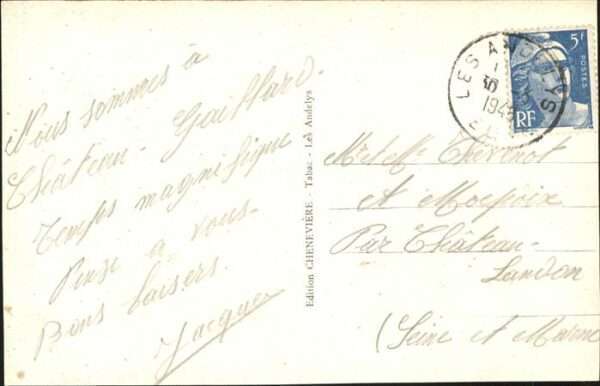 Nous sommes à
Château-Gaillard.
Temps magnifique
Pense à vous.
Bons baisers.
Jacques
Edition CHENEVIÈRE - Tabac - Les Andelys
LES ANDELYS
194
5F
POSTES
RF
Mr et Me Thévenot
A Moepoix
Par Château-
Landon
(Seine et Marne